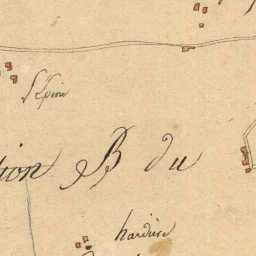 l'Epine
tion B du
hardière